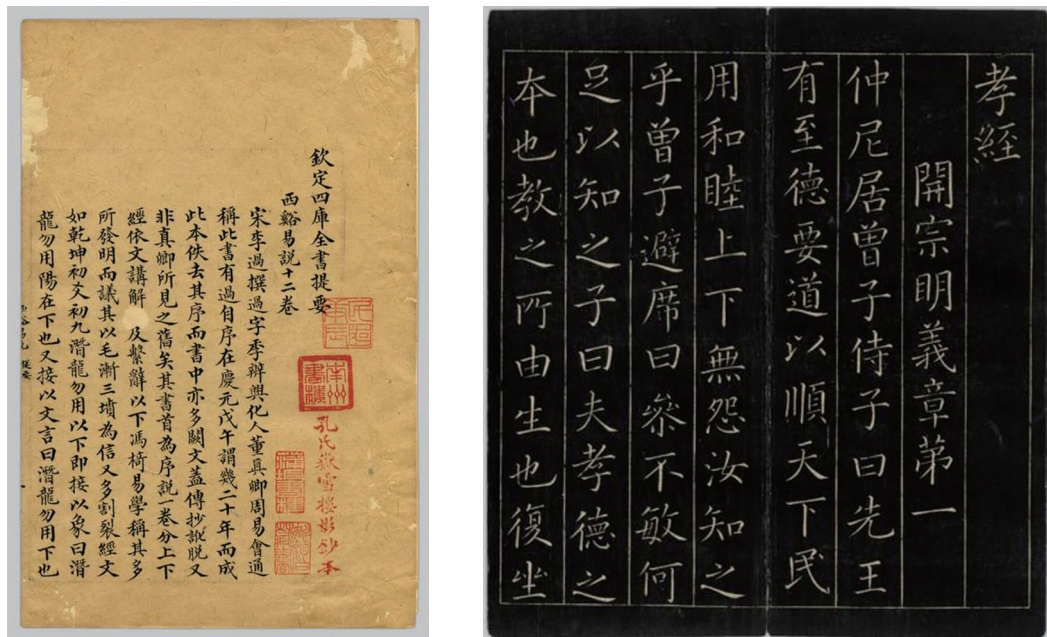 欽定四庫全書提要
西谿易說十二卷
宋李過撰過字季辨興化人董真卿周易會通
稱此書有過自序在慶元戊午謂幾二十年而成
此本佚去其序而書中亦多闕文蓋傳抄訛脫又
非真卿所見之舊矣其書首為序說一卷分上下
經依文講解 及繫辭以下馮椅易學稱其多
所發明而議其以毛漸三墳為信又多割裂經文
如乾坤初爻初九潛龍勿用以下即接以象曰潛
龍勿用陽在下也又接以文言曰潛龍勿用下也
南州書樓
孔氏嶽雪樓影鈔本
孝經
開宗明義章第一
仲尼居曾子侍子曰先王
有至德要道以順天下民
用和睦上下無怨汝知之
乎曾子避席曰參不敏何
足以知之子曰夫孝德之
本也教之所由生也復坐